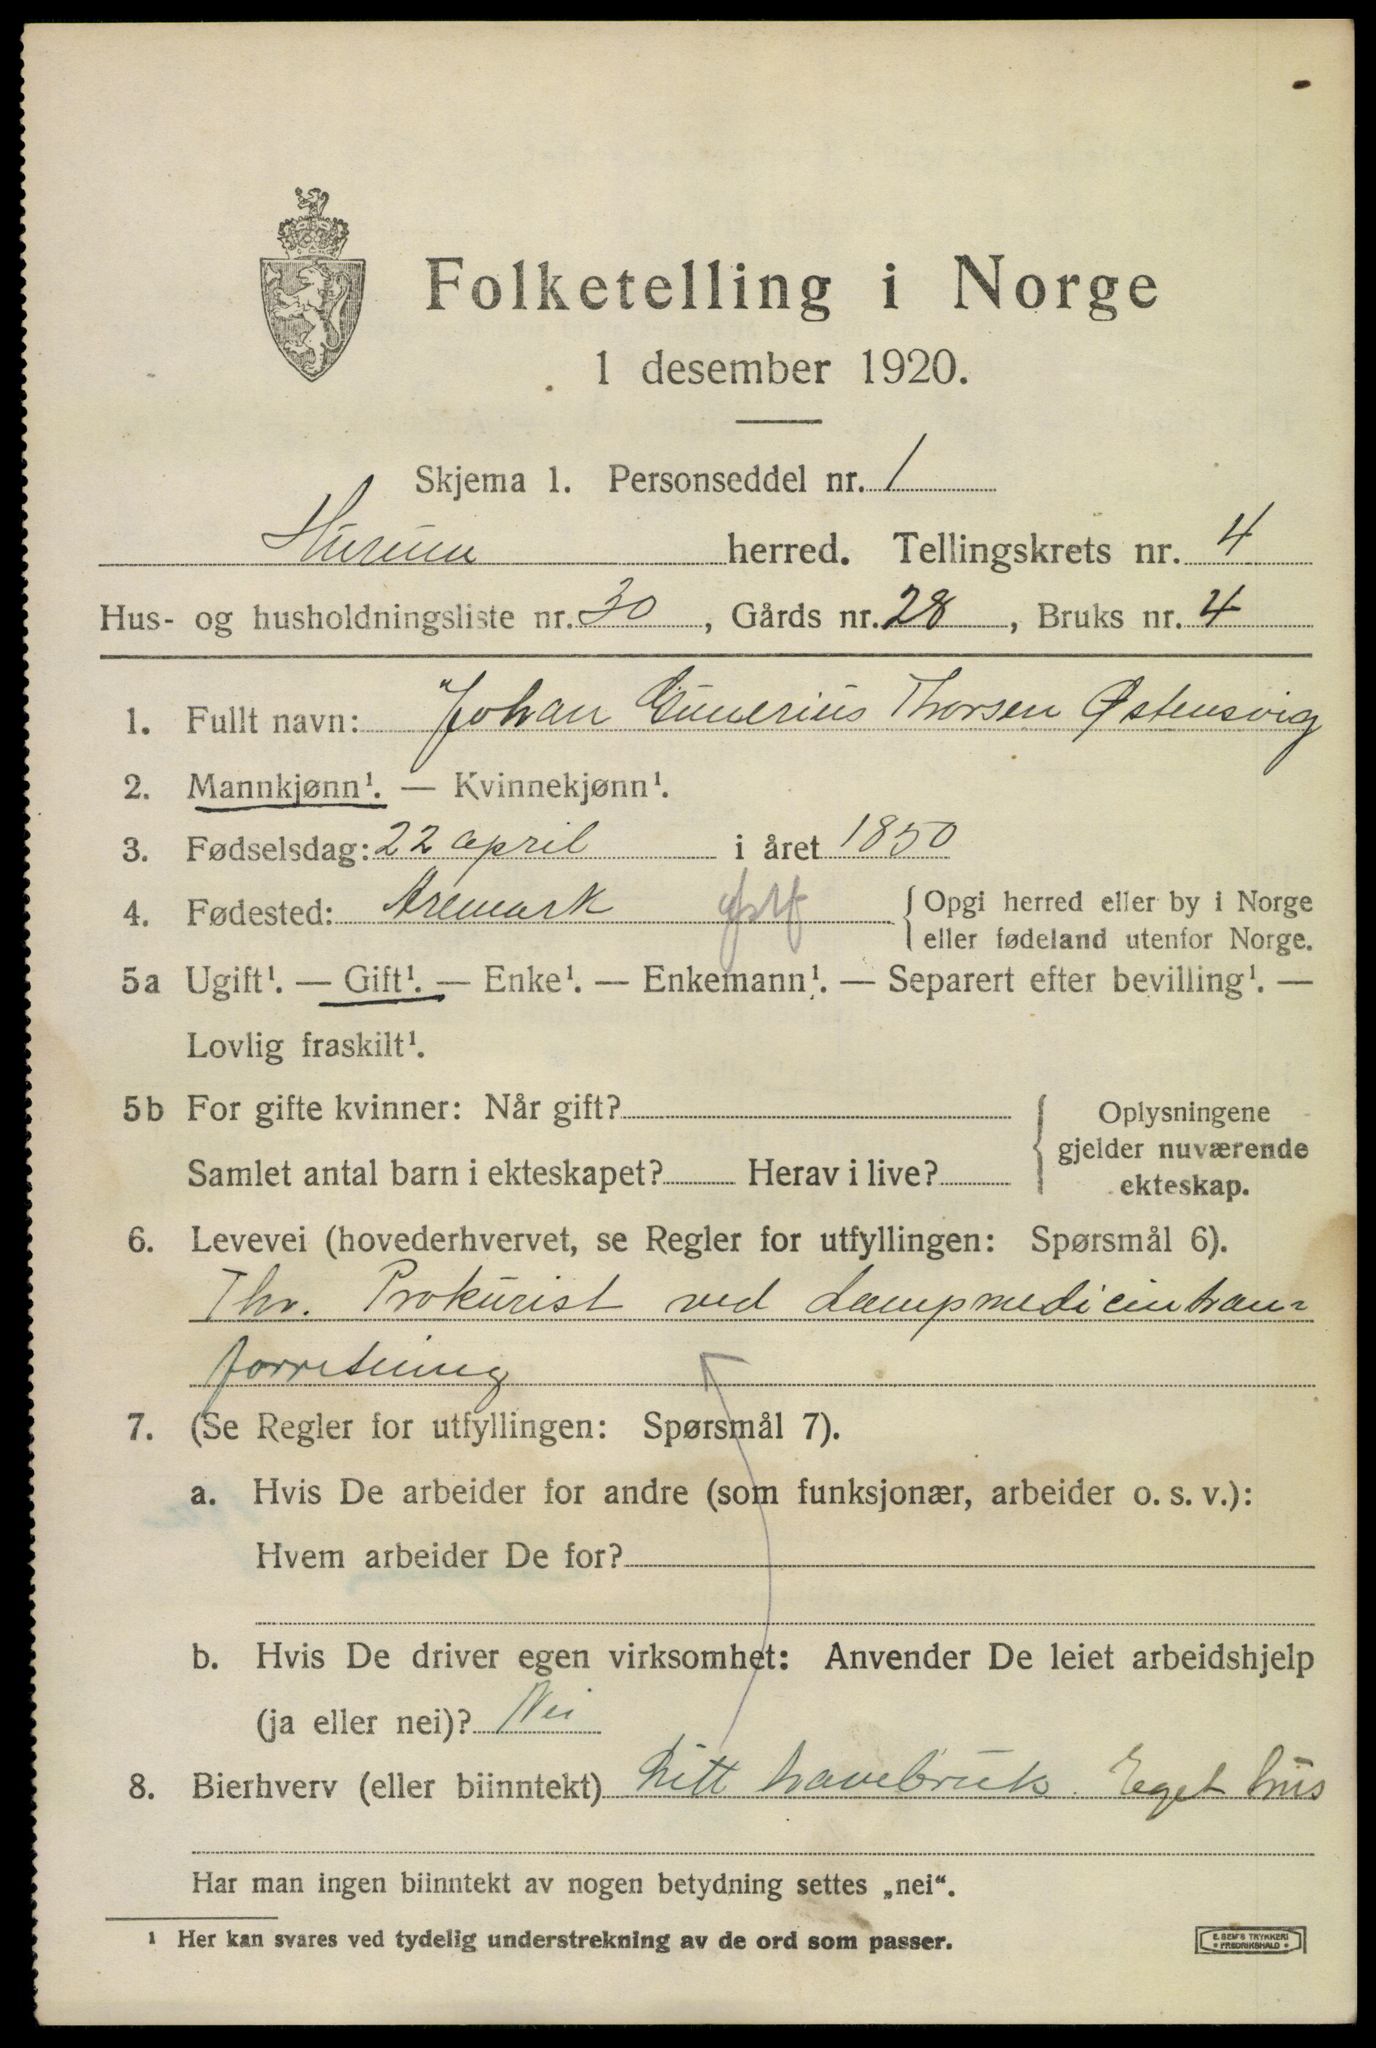 Folketelling i Norge
1 desember 1920.
Skjema 1. Personseddel nr. 1
Hurum herred. Tellingskrets nr. 4
Hus- og husholdningsliste nr. 30, Gårds nr. 28, Bruks nr. 4
1. Fullt navn: Johan Gunerius Thorsen Østensvig
2. Mannkjønn¹. — Kvinnekjønn¹.
3. Fødselsdag: 22 april i året 1850
4. Fødested: Aremark Østf { Opgi herred eller by i Norge
eller fødeland utenfor Norge.
5a Ugift¹. — Gift¹. — Enke¹. — Enkemann¹. — Separert efter bevilling¹. —
Lovlig fraskilt¹.
5b For gifte kvinner: Når gift? { Oplysningene
gjelder nuværende
Samlet antal barn i ekteskapet? Herav i live? ekteskap.
6. Levevei (hovederhvervet, se Regler for utfyllingen: Spørsmål 6).
Fhv. Prokurist ved Dampmedicintran-
forretning
7. (Se Regler for utfyllingen: Spørsmål 7).
a. Hvis De arbeider for andre (som funksjonær, arbeider o. s. v.):
Hvem arbeider De for?
b. Hvis De driver egen virksomhet: Anvender De leiet arbeidshjelp
(ja eller nei)? Nei
8. Bierhverv (eller biinntekt) Litt havebruk. Eget hus
Har man ingen biinntekt av nogen betydning settes „nei“.
1 Her kan svares ved tydelig understrekning av de ord som passer.
E. SEM'S TRYKKERI
FREDRIKSHALD